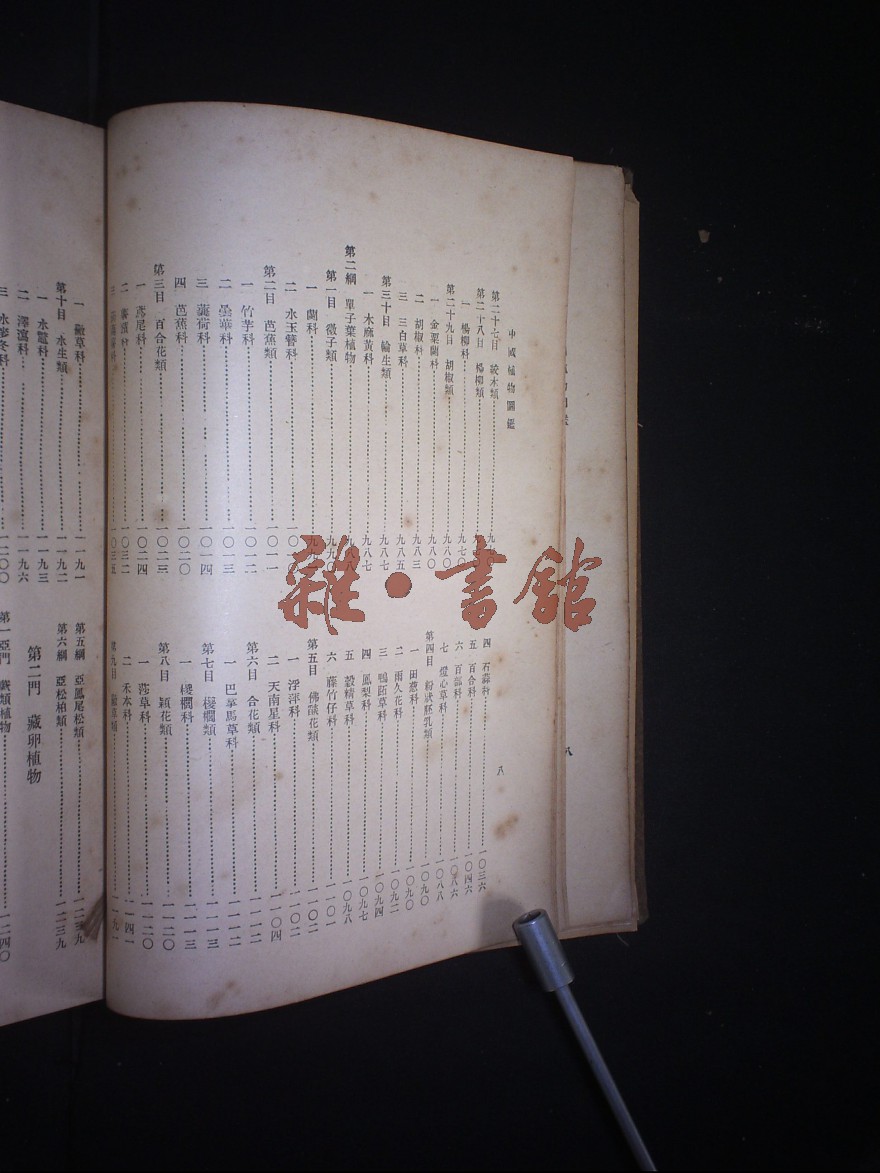 中國植物圖鑑
第二十七目 殼木類
第二十八目 楊柳類
一 楊柳科 九七〇
第二十九目 胡椒類 九八〇
一 金粟蘭科 九八〇
二 胡椒科 九八三
三 三白草科 九八五
第三十目 輪生類 九八七
一 木麻黃科 九八七
第二綱 單子葉植物
第一目 微子類 九九〇
一 蘭科
二 水玉簪科
第二目 芭蕉類 一〇一一
一 竹芋科 一〇一二
二 曇華科 一〇一三
三 蘘荷科 一〇一四
四 芭蕉科 一〇二〇
第三目 百合花類 一〇二三
一 鳶尾科 一〇二四
二 一〇三二
三 一〇三五
四 石蒜科 一〇三六
五 百合科 一〇四六
六 百部科 一〇八六
七 燈心草科 一〇八八
第四目 粉狀胚乳類 一〇九〇
一 田葱科 一〇九〇
二 雨久花科 一〇九二
三 鴨跖草科 一〇九四
四 鳳梨科 一〇九七
五 穀精草科 一〇九八
六 藤竹仔科 一一〇一
第五目 佛燄花類 一一〇二
一 浮萍科 一一〇二
二 天南星科 一一〇四
第六目 合花類 一一一二
一 巴拿馬草科 一一一二
第七目 椶櫚類 一一一三
一 椶櫚科 一一一三
第八目 穎花類 一一二〇
一 莎草科 一一二〇
二 禾本科 一一四一
第九目 黴草類 一一九一
八
一 黴草科 一一九一
第十目 水生類 一一九二
一 水鼈科 一一九三
二 澤瀉科 一一九六
三 水麥冬科 一二〇〇
第五綱 亞鳳尾松類 一二三九
第六綱 亞松柏類 一二三九
第二門 藏卵植物
第一亞門 蕨類植物 一二四〇
八
雜·書館